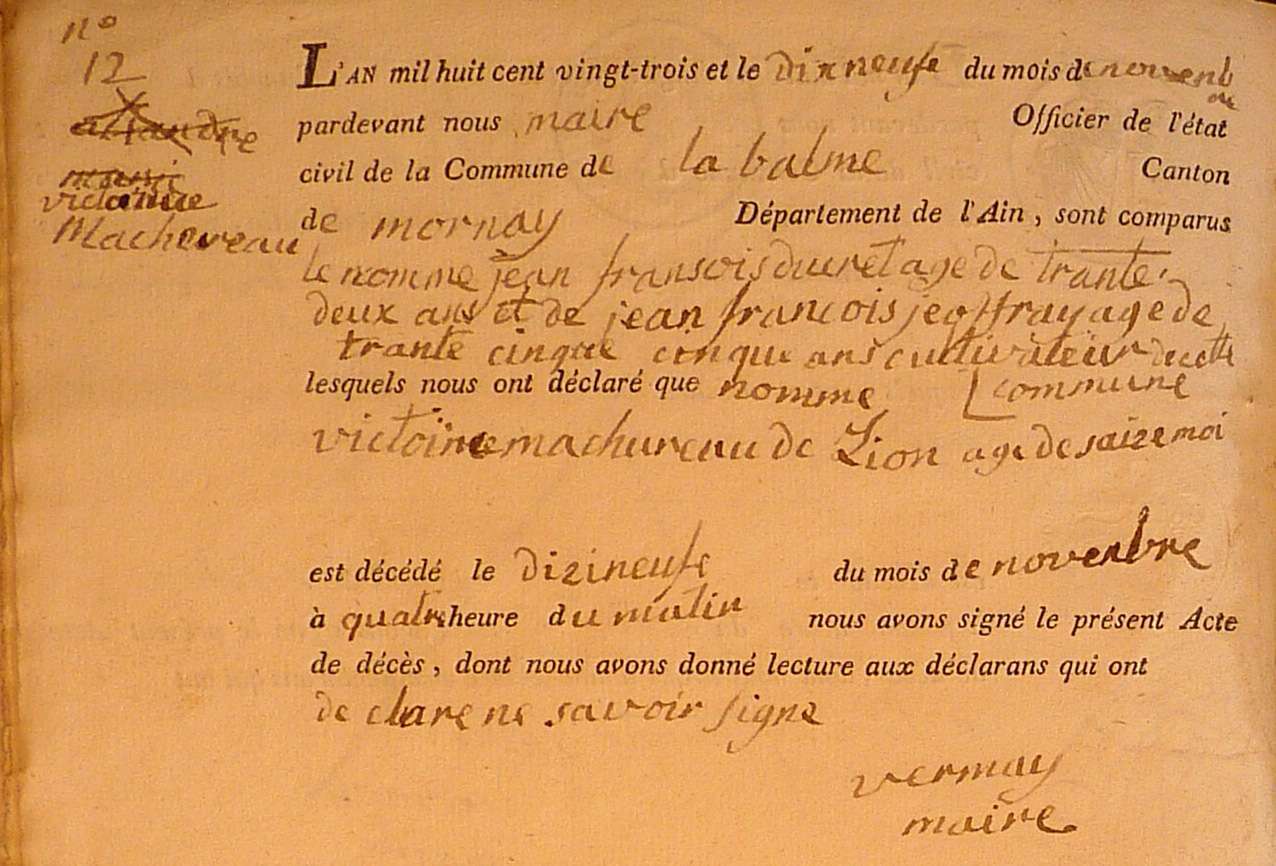 n°
12
alixandre
marie
victoirie
Machereau
L'AN mil huit cent vingt-trois et le dixneufe du mois de novenbre
pardevant nous maire Officier de l'état
civil de la Commune de la balme Canton
de mornay Département de l'Ain, sont comparus
le nomme jean fransois ducret age de trante
deux ans et de jean francois jeoffray age de
trante cinque cinque ans cultivateur de cette
lesquels nous ont déclaré que nomme commune
victoire machureau de Lion age de saize moi
est décédé le dizineufe du mois de novenbre
à quatre heure du matin nous avons signé le présent Acte
de décès, dont nous avons donné lecture aux déclarans qui ont
de clare ne savoir signe
vermay
maire